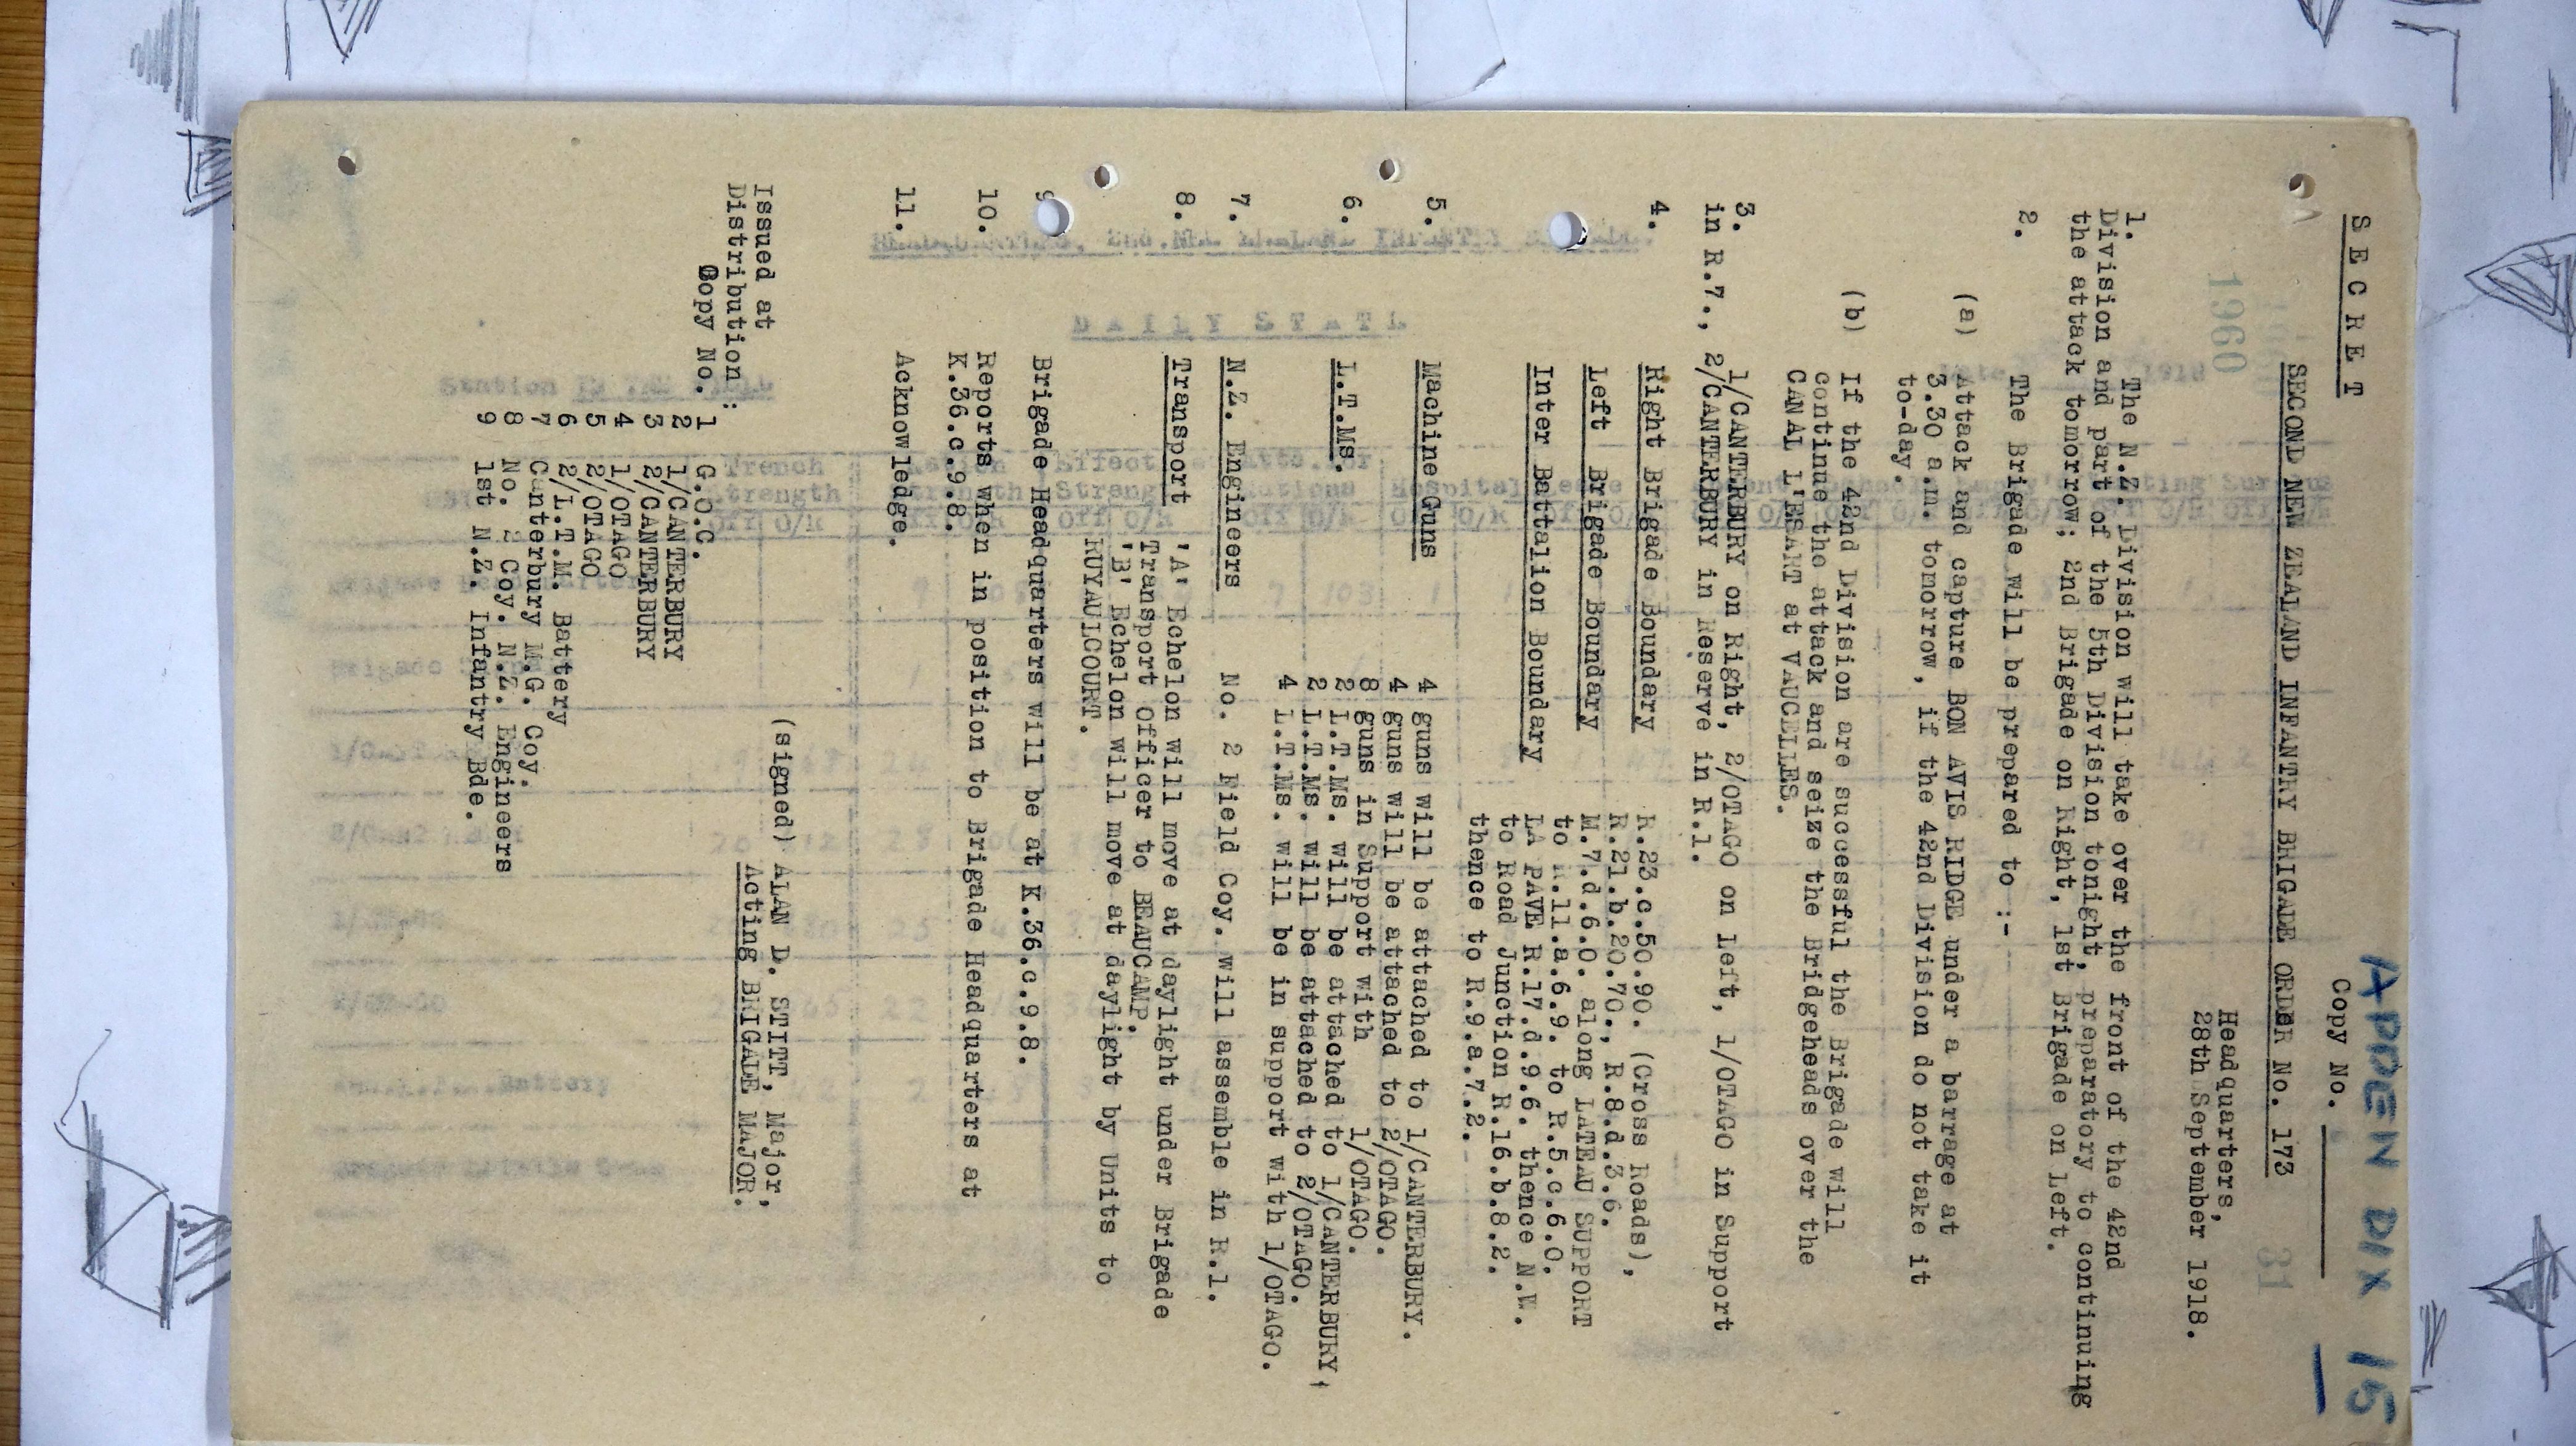 APPENDIX 15
SECRET
Copy No.
SECOND NEW ZEALAND INFANTRY BRIGADE ORDER No. 173
1960
31
Headquarters,
28th September 1918.
1. The N.Z. Division will take over the front of the 42nd
Division and part of the 5th Division tonight, preparatory to continuing
the attack tomorrow; 2nd Brigade on Right, 1st Brigade on Left.
2. The Brigade will be prepared to :-
(a) Attack and capture BON AVIS RIDGE under a barrage at
3.30 a.m. tomorrow, if the 42nd Division do not take it
to-day.
(b) If the 42nd Division are successful the Brigade will
continue the attack and seize the Bridgeheads over the
CANAL L'ESART at VAUCELLES.
3. 1/CANTERBURY on Right, 2/OTAGO on Left, 1/OTAGO in Support
in R.7., 2/CANTERBURY in Reserve in R.1.
4. Right Brigade Boundary R.23.c.50.90. (Cross Roads),
R.21.b.20.70., R.8.d.3.6.
Left Brigade Boundary M.7.d.6.0. along LATEAU SUPPORT
to R.11.a.6.9. to R.5.c.6.0.
Inter Battalion Boundary LA PAVE R.17.d.9.6. thence N.W.
to Road Junction R.16.b.8.2.
thence to R.9.a.7.2.
5. Machine Guns 4 guns will be attached to 1/CANTERBURY.
4 guns will be attached to 2/OTAGO.
8 guns in Support with 1/OTAGO.
6. L.T.Ms. 2 L.T.Ms. will be attached to 1/CANTERBURY,
2 L.T.Ms. will be attached to 2/OTAGO.
4 L.T.Ms. will be in support with 1/OTAGO.
7. N.Z. Engineers No. 2 Field Coy. will assemble in R.1.
8. Transport 'A' Echelon will move at daylight under Brigade
Transport Officer to BEAUCAMP.
'B' Echelon will move at daylight by Units to
RUYAULCOURT.
9 Brigade Headquarters will be at K.36.c.9.8.
10. Reports when in position to Brigade Headquarters at
K.36.c.9.8.
11. Acknowledge.
(signed) ALAN D. STITT, Major,
Acting BRIGADE MAJOR.
Issued at
Distribution :
Copy No. 1 G.O.C.
2 1/CANTERBURY
3 2/CANTERBURY
4 1/OTAGO
5 2/OTAGO
6 2/L.T.M. Battery
7 Canterbury M.G. Coy.
8 No. 2 Coy. N.Z. Engineers
9 1st N.Z. Infantry Bde.